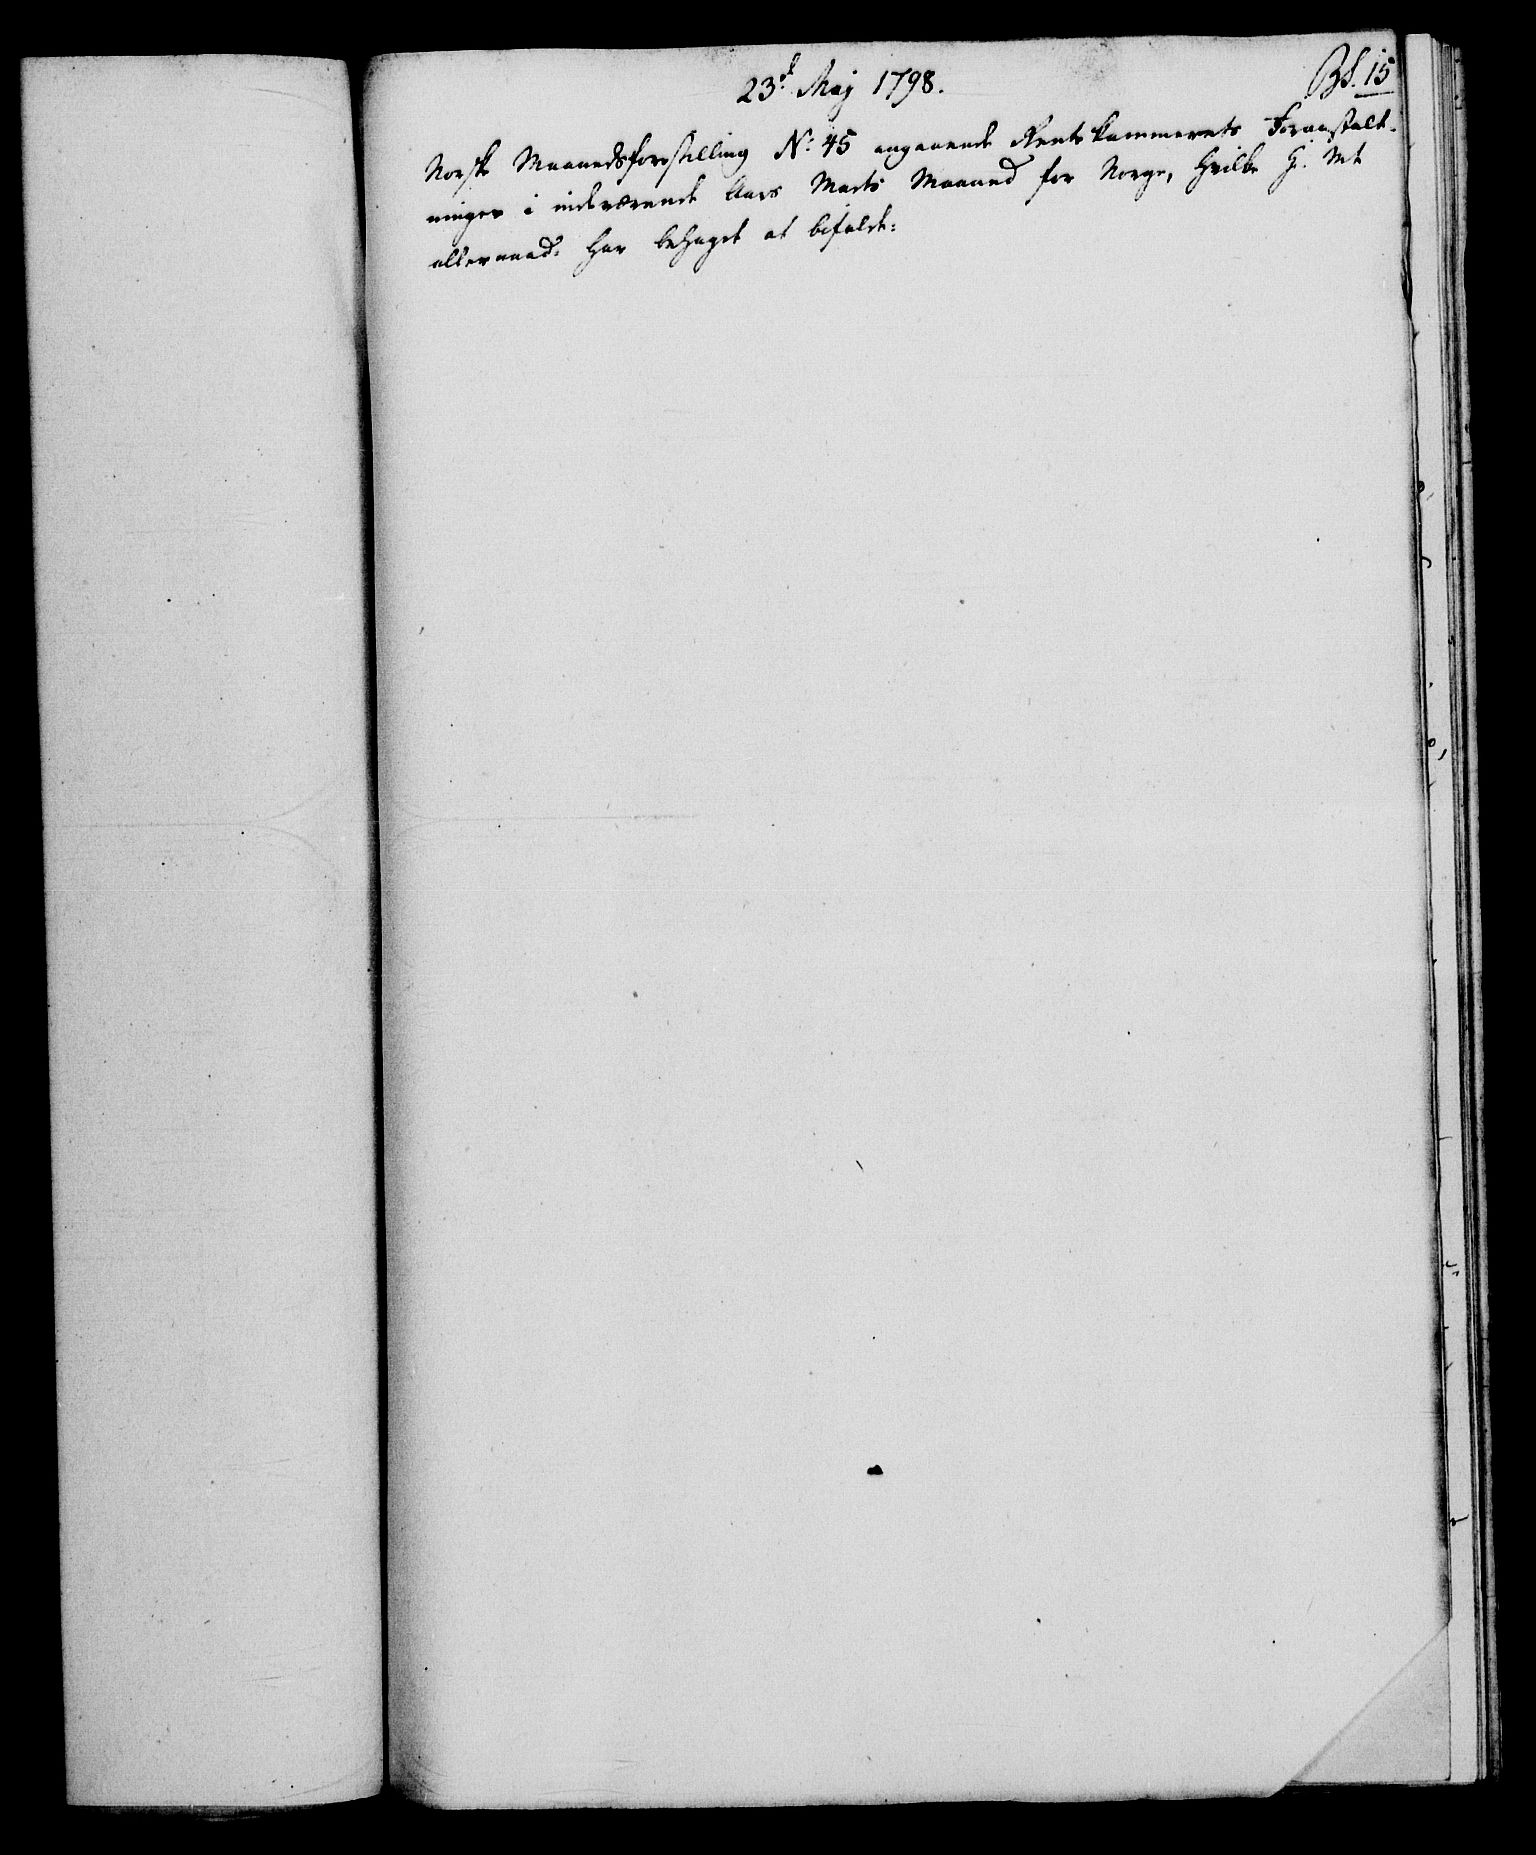 23d Maj 1798.
Bl. 15
Norsk Maanedsforestilling No 45 angaaende Rentekammerets Foranstalt-
ninger i indeværende Aars Marts Maaned for Norge, hvilke H. Mt
allernaad: har behaget at bifalde: